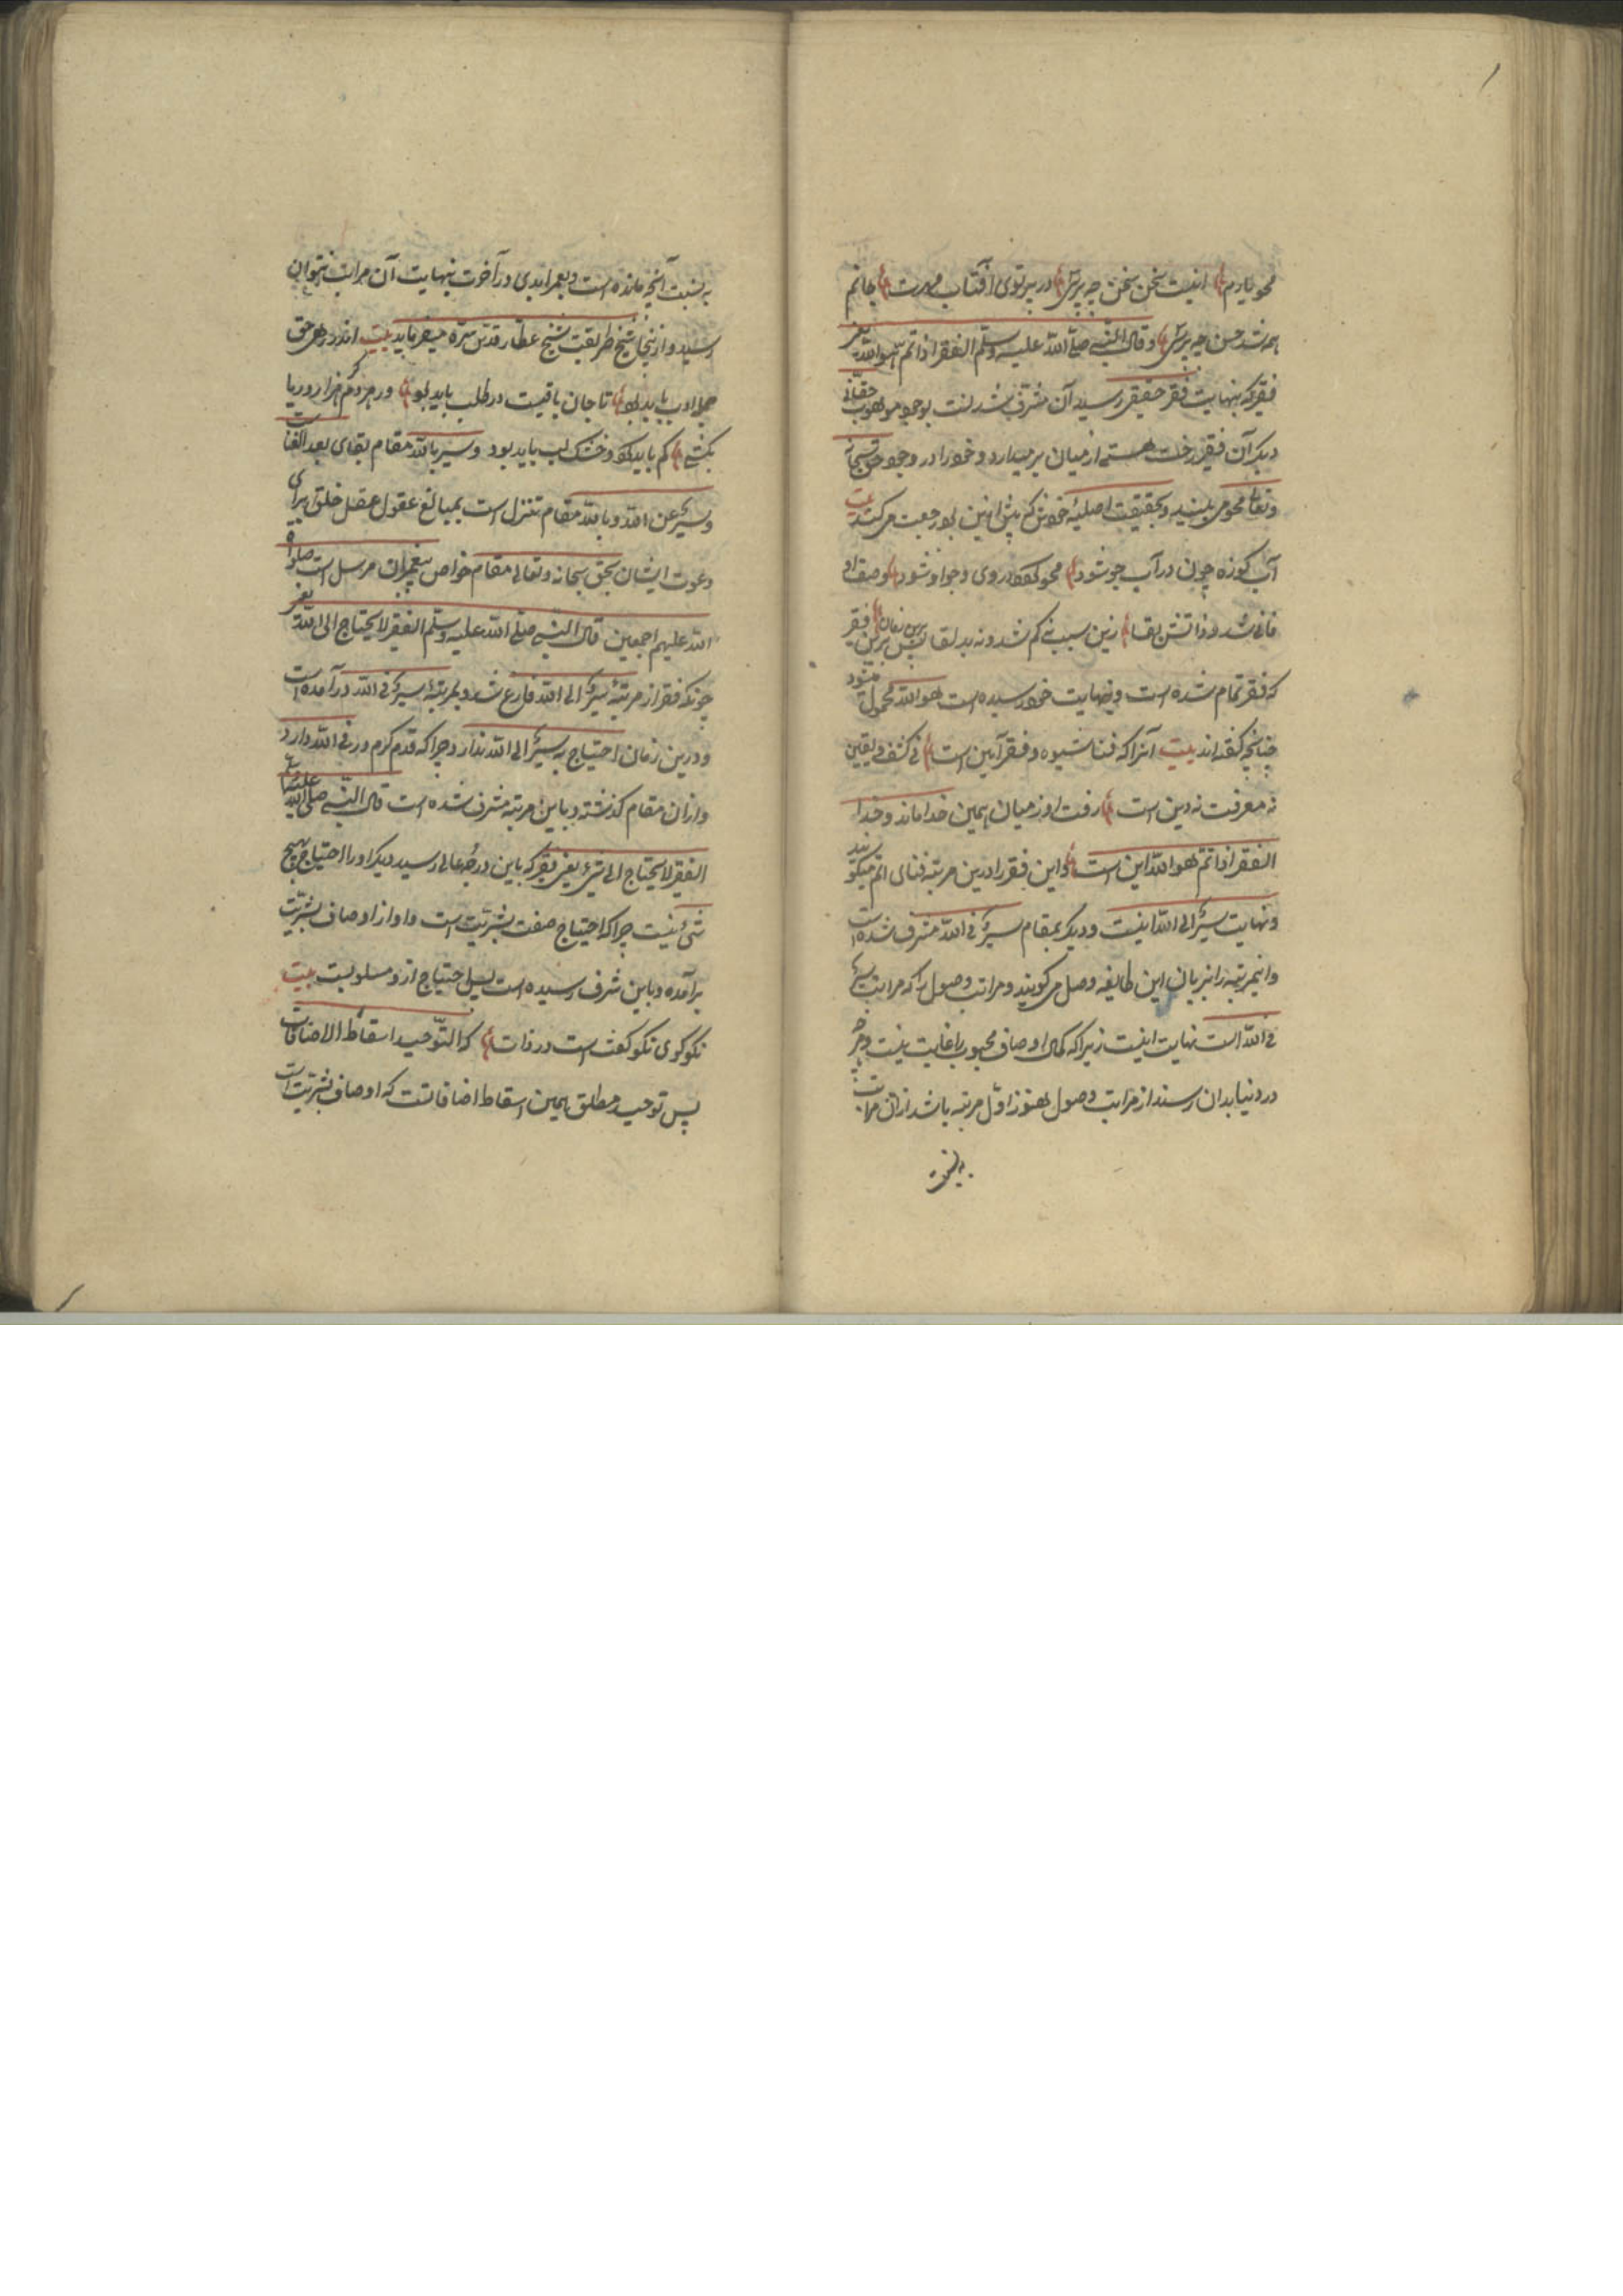 محو یارم اینست سخن سخن چه پرسی در پرتوی آفتاب مهرت جانم
همه شد حسن چه پرسی و قال النبی صلی الله علیه وسلم الفقر اذا تم هو الله یعنی
فقر که بنهایت فقر حقیقی رسید آن مشرف شدنست بوجود موهوب حقانی
دیگر آن فقیر رخت هستی از میان بر میدارد و خود را در وجود حق سبحانه
وتعالی محو می بیند و بحقیقت اصلیه خویش که پیش ازین بود رجعت می کند بیت
آب کوزه چون در آب جو شود محو گردد در وی و جو او شود وصف او
فانی شد و ذاتش بقا زین سپس نی کم شود نه بد لقا پس درین زمان فقر
که فقر تمام شده است و بنهایت خود رسیده است هو الله محمول میشود
چنانچه گفته اند بیت آنرا که فنا شیوه و فقر آیین است نی کشف و یقین
نه معرفت نه دین است رفت او ز میان همین خدا ماند و خدا
الفقر اذا تم هو الله این است و این فقر را درین مرتبه فنای اتم میگویند
و نهایت سیر الی الله اینست و دیگر بمقام سیر فی الله مشرف شده است
و اینمرتبه را بزبان این طایفه وصل می گویند و مراتب وصول را که مراتب سیر
فی الله است نهایت نیست زیرا که کمال اوصاف محبوب را غایت نیست و هر چه
در دنیا بدان رسند از مراتب وصول هنوز اول مرتبه باشد از آن مراتب
به نسبت
به نسبت آنچه مانده است و بعمر ابدی در آخرت بنهایت آن مراتب نتوان
رسید و ازینجا شیخ طریقت شیخ عطار قدس سره میفرماید بیت اندر ره حق
جمله ادب باید بود تا جان باقیست در طلب باید بود در هر دم گر هزار دریا
بکشی کم باید کرد و خشک لب باید بود و سیر بالله مقام بقای بعد الفنا است
و سیر عن الله و بالله مقام تنزل است بمبالغ عقول عقل خلق برای
دعوت ایشان بحق سبحانه وتعالی مقام خواص پیغمبران مرسل است صلواة
الله علیهم اجمعین قال النبی صلی الله علیه وسلم الفقر لا یحتاج الی الله یعنی
چونکه فقر از مرتبه سیر الی الله فارغ شد و بمرتبه سیر فی الله درآمده است
و درین زمان احتیاج به سیر الی الله ندارد چرا که قدم کرم در فی الله دارد
و از آن مقام گذشته و باین مرتبه مشرف شده است قال النبی صلی الله علیه وسلم
الفقیر لا یحتاج الی شیء یعنی فقیر که باین درجه عالی رسید دیگر او را احتیاج بهیچ
شیء نیست چرا که احتیاج صفت بشریت است و او از اوصاف بشریت
برآمده و باین شرف رسیده است پس احتیاج ازو مسلوبست بیت
نکو گوی نکو گفته است در ذات که التوحید اسقاط الاضافات
پس توحید مطلق همین اسقاط اضافاتست که اوصاف بشریت است